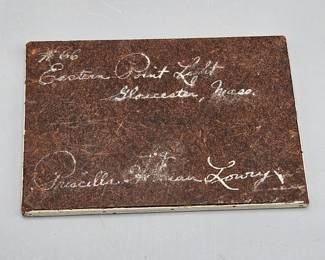 No 66
Eastern Point Light
Gloucester, Mass.
Priscilla Lowry